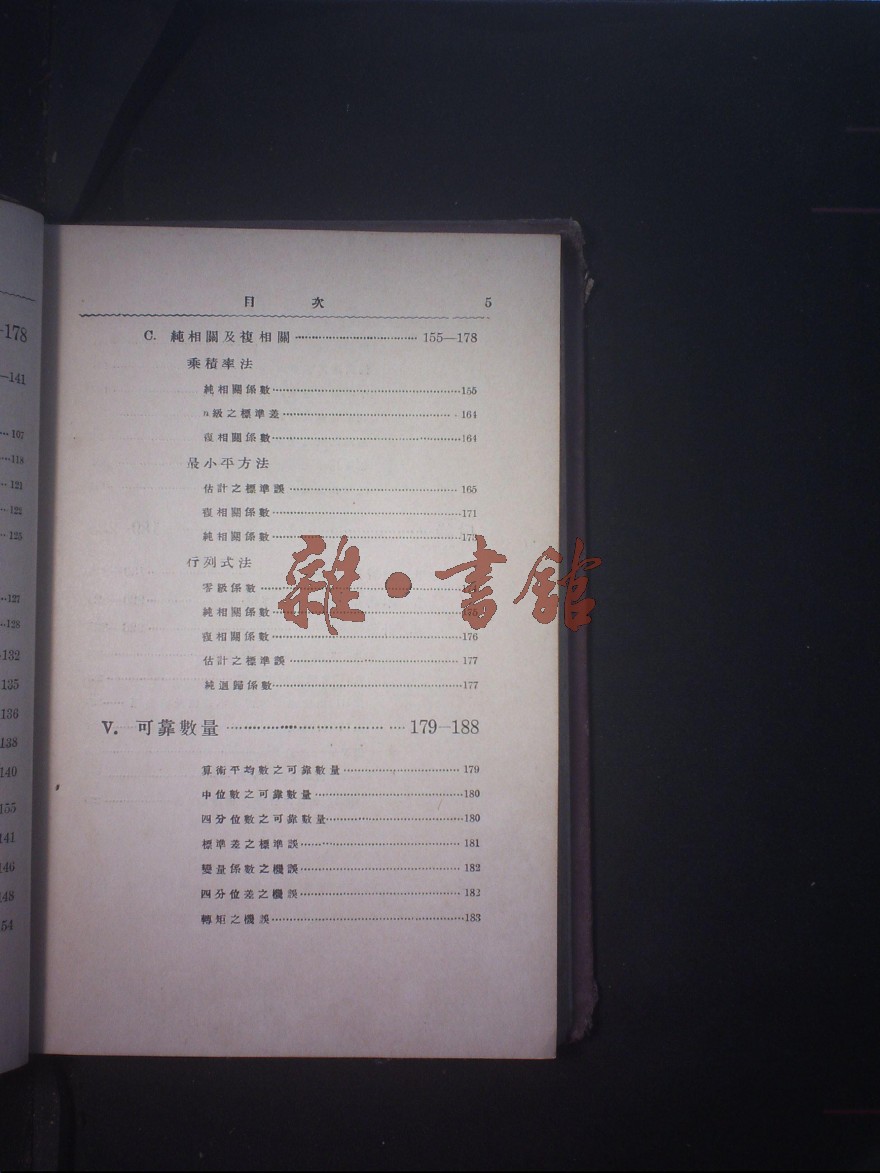 -178
—141
107
118
121
122
125
127
128
132
135
136
138
140
155
141
146
148
54
目 次 5
C. 純相關及複相關 155—178
乘積率法
純相關係數 155
n級之標準差 164
復相關係數 164
最小平方法
估計之標準誤 165
復相關係數 171
純相關係數 17
行列式法
零級係數
純相關係數 175
復相關係數 176
估計之標準誤 177
純迴歸係數 177
V. 可靠數量 179—188
算術平均數之可靠數量 179
中位數之可靠數量 180
四分位數之可靠數量 180
標準差之標準誤 181
變量係數之機誤 182
四分位差之機誤 182
轉矩之機誤 183
雜·書館